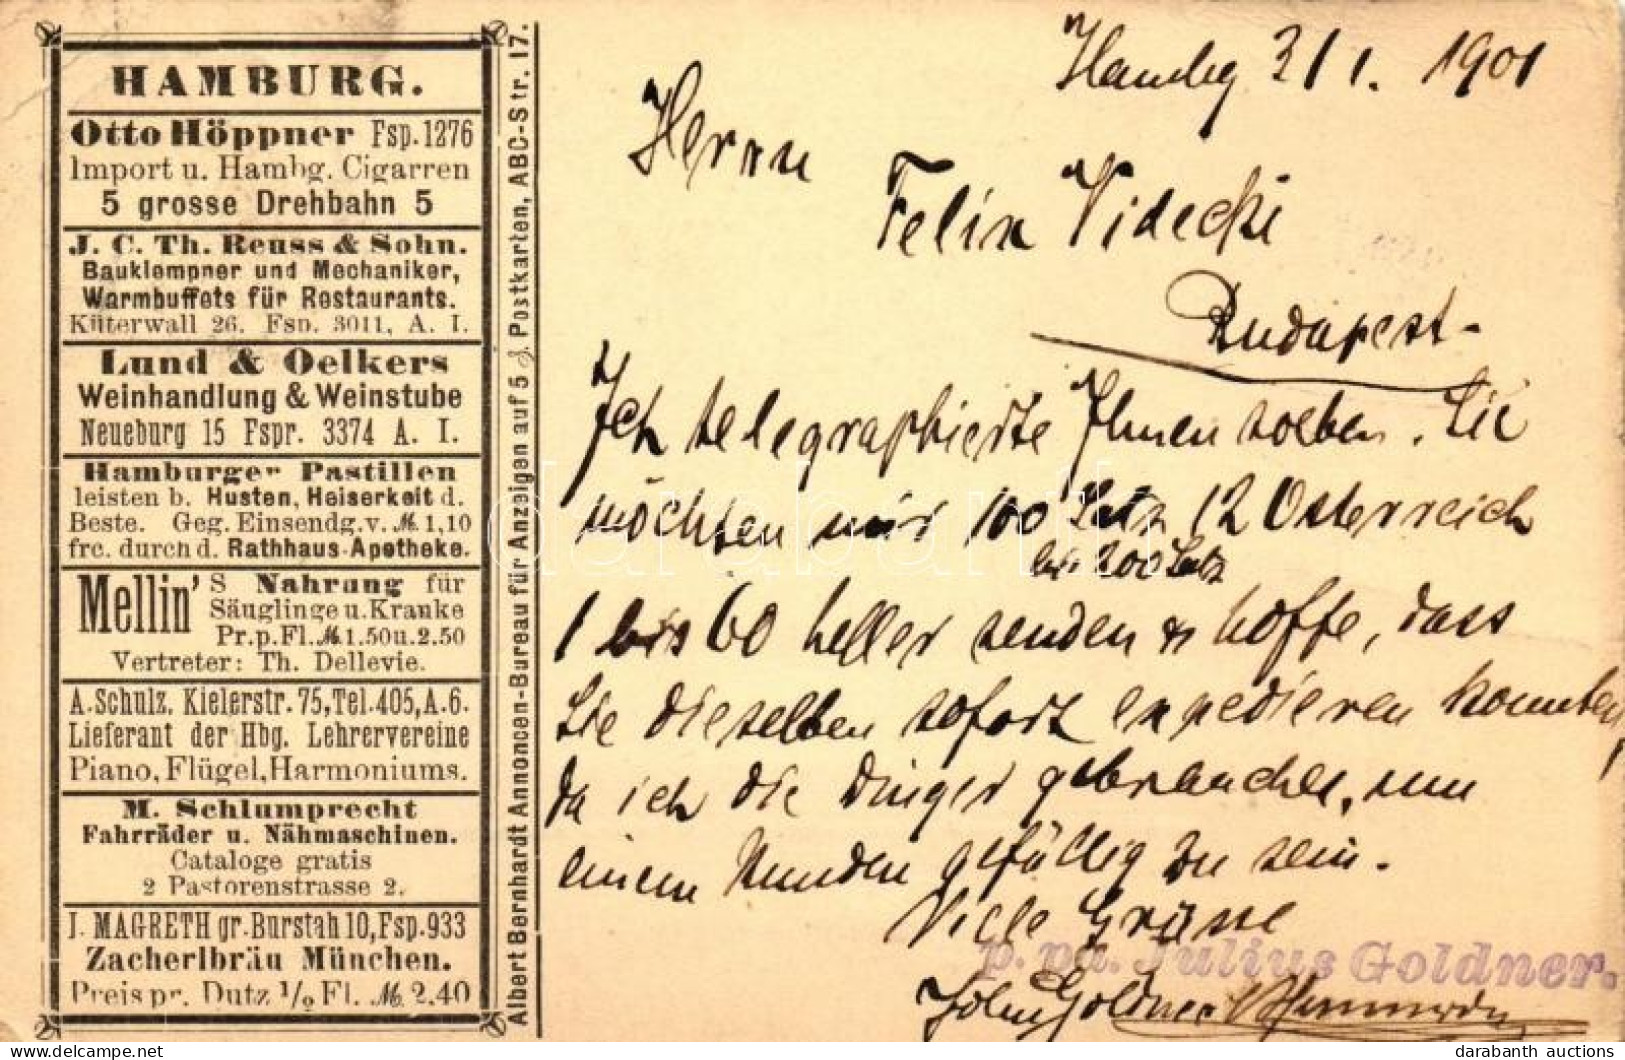 HAMBURG.
Otto Höppner Fsp. 1276
Import u. Hambg. Cigarren
5 grosse Drehbahn 5
J. C. Th. Reuss & Sohn.
Bauklempner und Mechaniker,
Warmbuffets für Restaurants.
Küterwall 26. Fsp. 3011, A. I.
Lund & Oelkers
Weinhandlung & Weinstube
Neueburg 15 Fspr. 3374 A. I.
Hamburger Pastillen
leisten b. Husten, Heiserkeit d.
Beste. Geg. Einsendg. v. M. 1,10
frc. durch d. Rathhaus-Apotheke.
Mellin's Nahrung für
Säuglinge u. Kranke
Pr. p. Fl. M. 1.50 u. 2.50
Vertreter: Th. Dellevie.
A. Schulz, Kielerstr. 75, Tel. 405, A. 6.
Lieferant der Hbg. Lehrervereine
Piano, Flügel, Harmoniums.
M. Schlumprecht
Fahrräder u. Nähmaschinen.
Cataloge gratis
2 Pastorenstrasse 2.
J. MAGRETH gr. Burstah 10, Fsp. 933
Zacherlbräu München.
Preis pr. Dutz 1/2 Fl. M. 2.40
Albert Bernhardt Annoncen-Bureau für Anzeigen auf 5 ₰ Postkarten, ABC-Str. 17.
Hambg 1901
Herrn
Felix Videcki
Budapest
Ich telegraphierte Ihnen soeben. Sie
möchten mir 100 Satz 12 Österreich
bis 200 Satz
1 bis 60 heller senden & hoffe, dass
Sie dieselben sofort expedieren konnten,
da ich die Dinger gebrauche, um
einem Kunden gefällig zu sein.
Viele Grüsse
p. pa. Julius Goldner.
John Goldner
darabanth
darabanth auctions